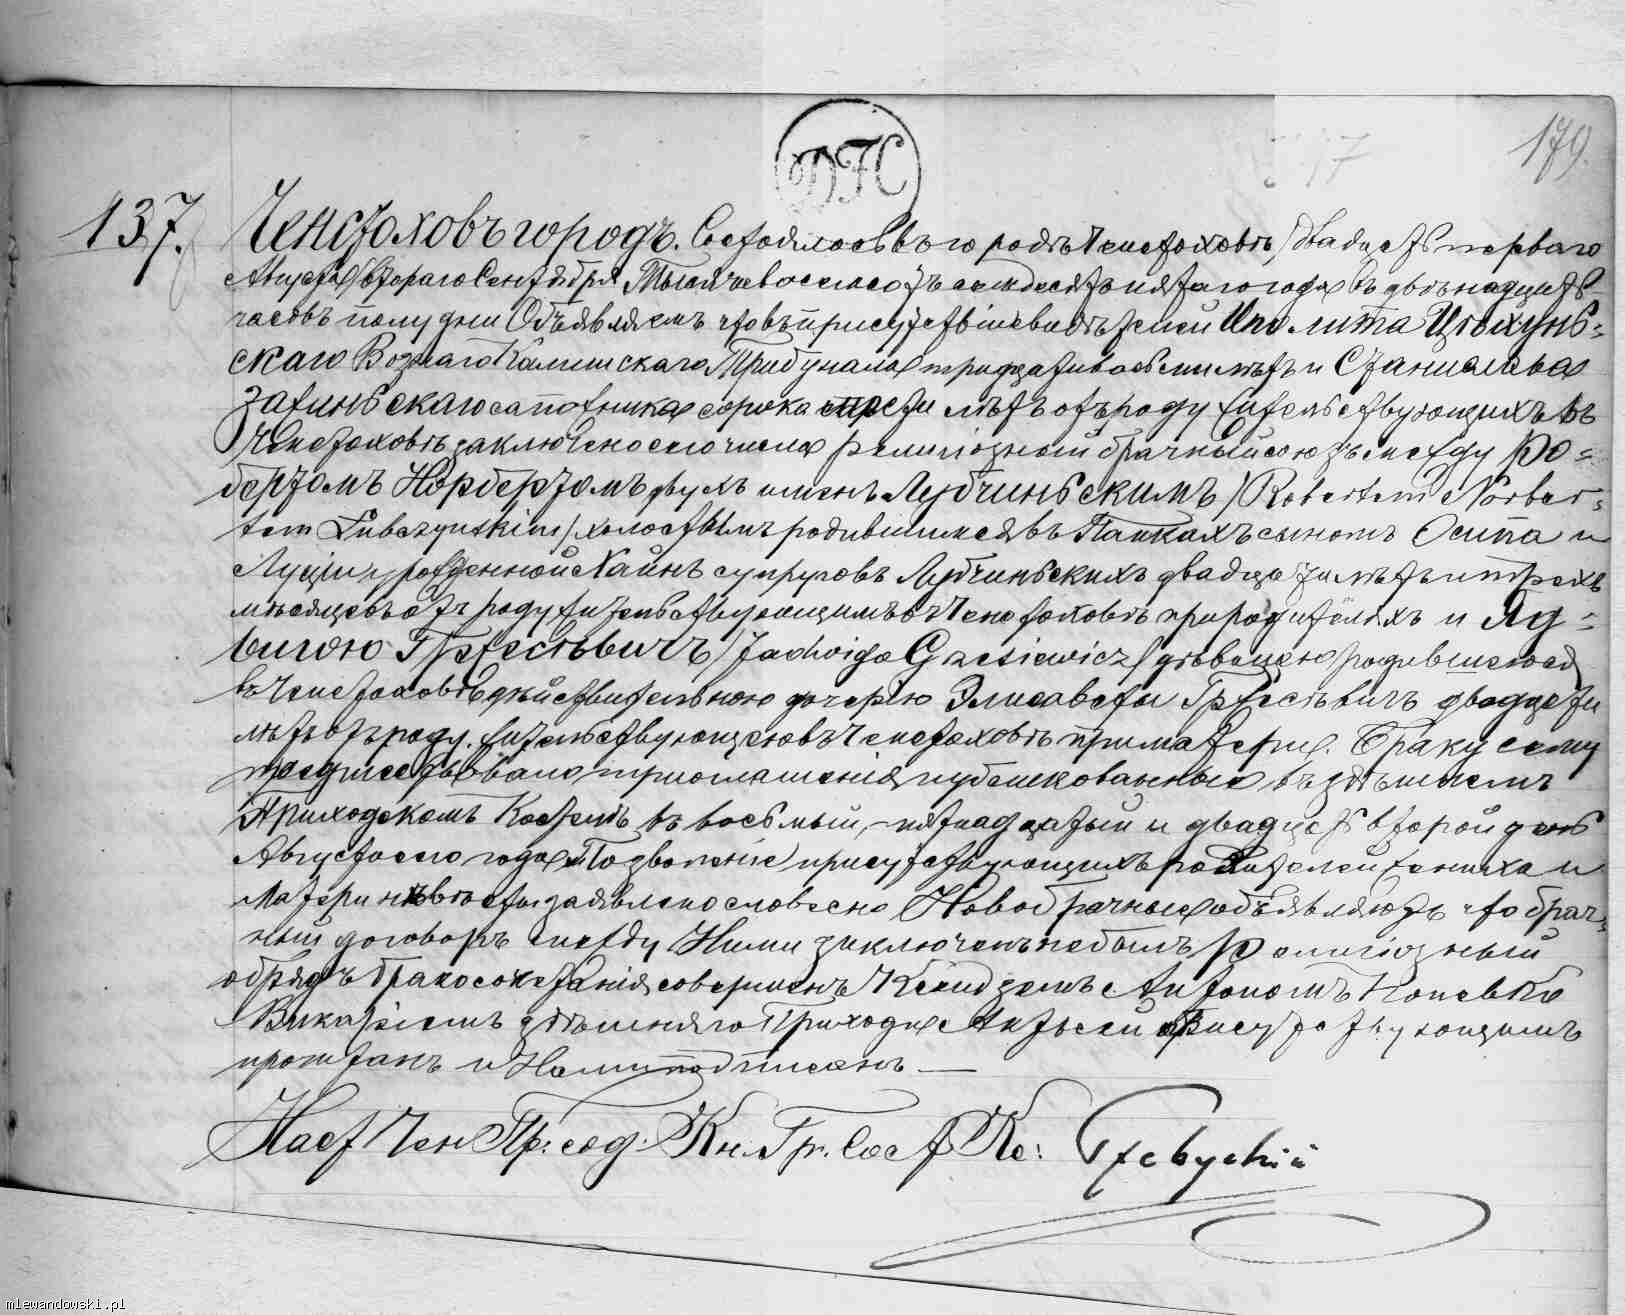 179.
DFC
137. Ченстоховъ городъ. Состоялось въ городѣ Ченстоховѣ двадцать перваго
Августа /втораго Сентября Тысяча восемсотъ семдесятъ пятаго года въ двѣнадцать
часовъ полудни Объявляемъ что въ присутствіи свидѣтелей Иполита Цѣхунь-
скаго Вознаго Калишскаго Трибунала тридцати восьми лѣтъ и Станислава
сапожника сорока лѣтъ отъ роду жительствующихъ въ
Ченстоховѣ заключено сего числа религіозный брачный союзъ между Ро-
бертомъ Норбертомъ двухъ именъ Лубчиньскимъ /Robertem Norber-
tem Lubczynskim/ холостымъ родившимся въ Панкахъ сыномъ Осипа и
Луціи урожденной Хайнъ супруговъ Лубчиньскихъ двадцати лѣтъ и трехъ
мѣсяцевъ отъ роду жительствующимъ въ Ченстоховѣ при родителяхъ и Яд-
вигою Гржесѣвичъ /Jadwiga Grzesiewicz/ дѣвицею родившеюся
въ Ченстоховѣ дочерью Элисаветы Гржесѣвичъ двадцати
лѣтъ отъ роду. жительствующею въ Ченстоховѣ при матери. Браку сему
предшествовало три оглашенія публикованныя въ здѣшнемъ
Приходскомъ Костелѣ въ восьмый, пятнадцатый и двадцать второй день
Августа сего года Позволеніе присутствующихъ родителей жениха и
Матери невѣсты заявлено словесно Новобрачные объявляютъ что брач-
ный договоръ между Ними заключенъ не былъ Религіозный
обрядъ бракосочетанія совершенъ Ксендземъ Антономъ
Викаріемъ здѣшняго Прихода Актъ сей присутствующимъ
прочтанъ и Нами подписанъ —
Наст Чен Пр: сод: Кн. Гр. Сост Кс:
mlewandowski.pl